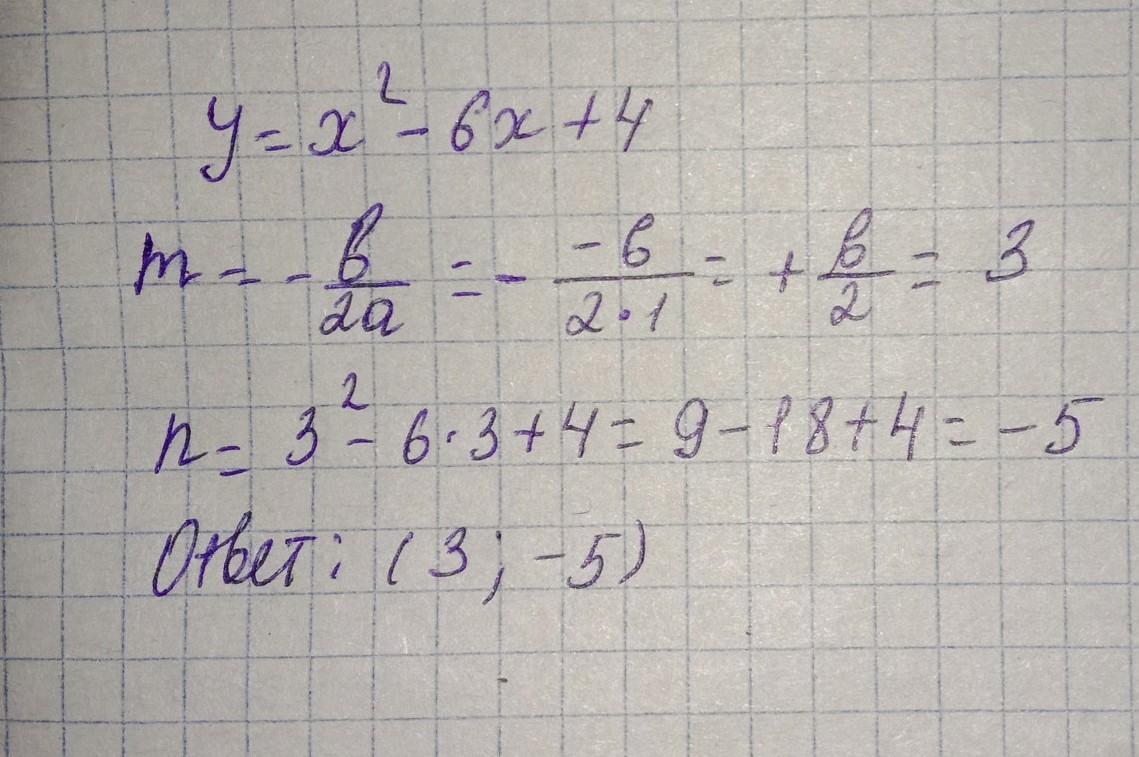 y = x² - 6x + 4
m = - b/2a = - -6/2·1 = + 6/2 = 3
n = 3² - 6·3 + 4 = 9 - 18 + 4 = -5
Ответ: (3; -5)